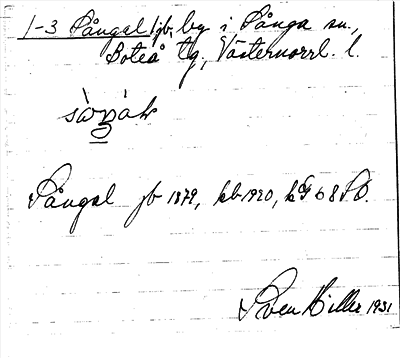 1-3 Sångal jb. by i Sånga sn.,
Boteå tg, Västernorrl. l.
Sångal jb 1879, kb 1920, kG 68 SO.
Sven Hiller 1931